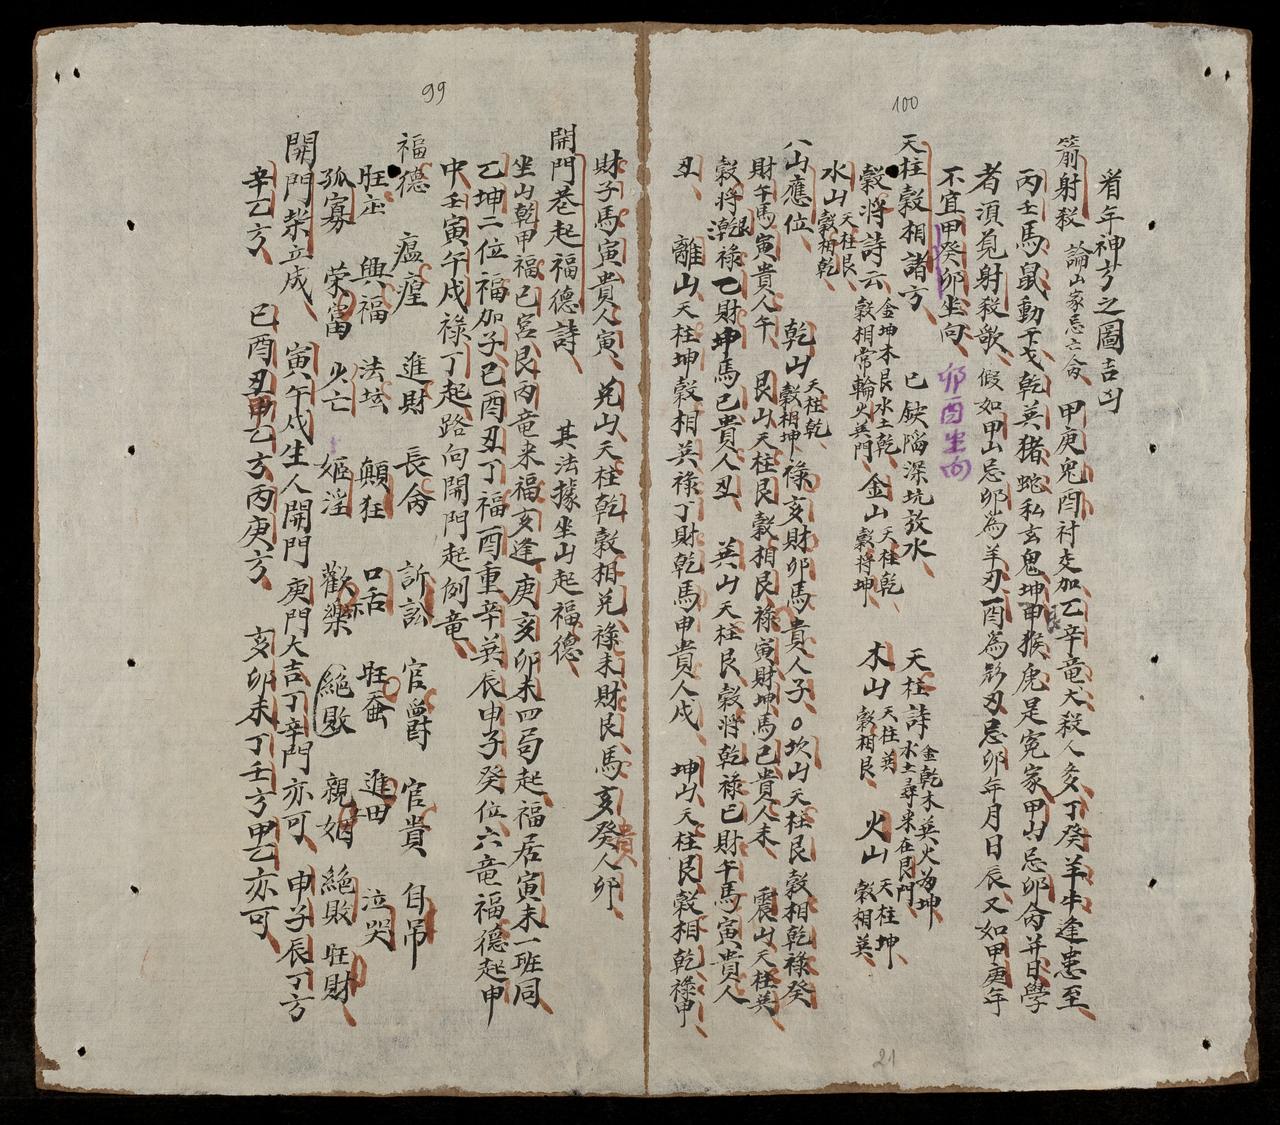 100
看年神方之圖吉凶
箭射殺 論山家忌六命 甲庚鬼酉討交加乙辛竜犬殺人多丁癸羊牛逢患至
丙壬馬鼠動干戈乾英猪蛇私玄鬼坤甲猴虎是冤家甲山忌卯命并日學
者須莧射殺歌 假如甲山忌卯為羊刃酉為影刃忌卯年月日辰又如甲庚年
不宜甲癸卯坐向 卯酉坐向
天柱穀相諸方 已缺陷深坑放水 天柱詩 金乾木英火為坤 水土尋來在艮門
穀將詩云 金坤木艮水土乾 穀相常輪火英門 金山 天柱乾 穀將坤 木山 天柱英 穀相艮 火山 天柱坤 穀相英
水山 天柱艮 穀相乾
八山應位 乾山 天柱乾 穀相坤 祿亥財卯馬貴人子○坎山天柱艮穀相乾祿癸
財午馬寅貴人午 艮山天柱艮穀相艮祿寅財坤馬巳貴人未 震山天柱英
穀將乾祿乙財坤馬巳貴人丑 英山天柱艮穀將乾祿巳財午馬寅貴人
丑 離山天柱坤穀相英祿丁財乾馬申貴人戌 坤山天柱艮穀相乾祿申
21
99
財子馬寅貴人寅 兌山天柱乾穀相兌祿未財艮馬亥癸貴人卯
開門巷起福德詩 其法據坐山起福德
坐山乾甲福巳宮艮丙竜來福亥逢庚亥卯未四局起福居寅未一班同
乙坤二位福加子巳酉丑丁福酉重辛英辰申子癸位六竜福德起申
中壬寅午戌祿丁起路向開門起例竜
福德 瘟瘟 進財 長命 訴訟 官爵 官貴 自吊
旺庄 興福 法坛 顛狂 口舌 旺蚕 進田 泣哭
孤寡 荣富 少亡 姬淫 歡樂 絕敗 親姻 絕敗 旺財
開門柴立成 寅午戌生人開門 庚門大吉丁辛門亦可 申子辰丁方
辛乙方 巳酉丑甲乙方丙庚方 亥卯未丁壬方甲乙亦可